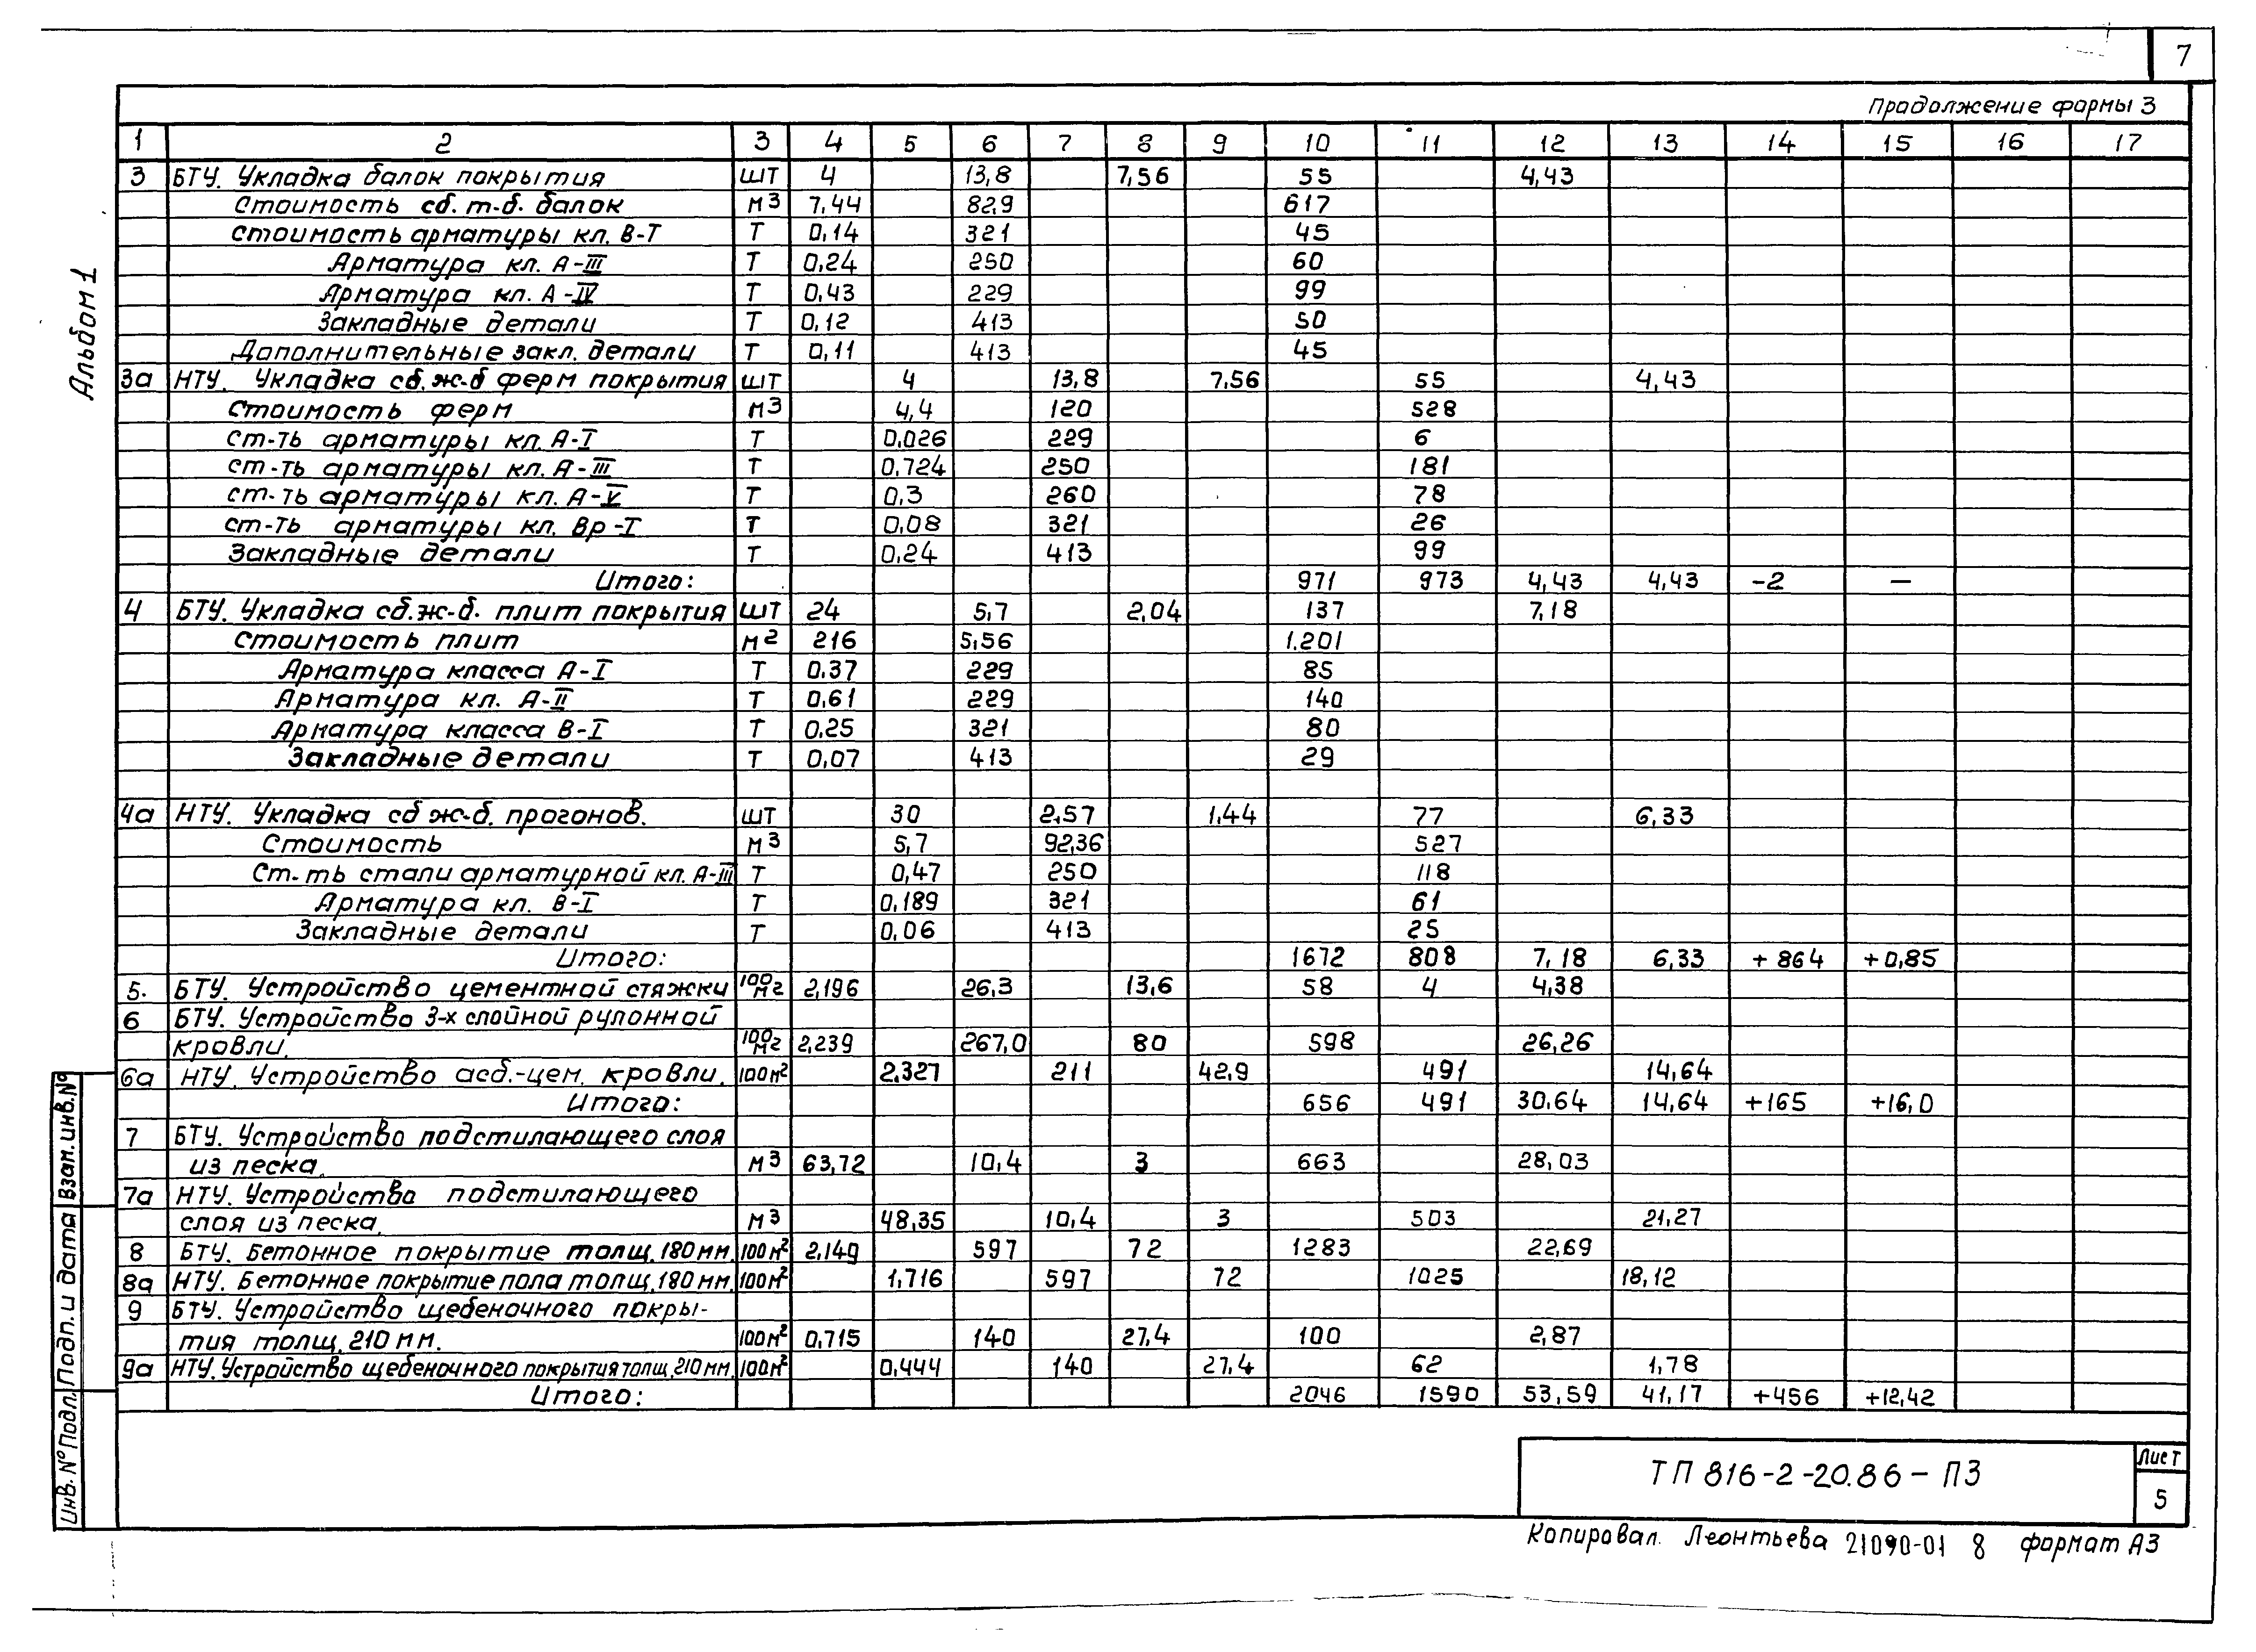 7
Продолжение формы 3
1 2 3 4 5 6 7 8 9 10 11 12 13 14 15 16 17
3 БТУ. Укладка балок покрытия шт 4 13,8 7,56 55 4,43
Стоимость сб. т-б. балок м3 7,44 82,9 617
Стоимость арматуры кл. В-Т Т 0,14 321 45
Арматура кл. А-III Т 0,24 250 60
Арматура кл. А-IV Т 0,43 229 99
Закладные детали Т 0,12 413 50
Дополнительные закл. детали Т 0,11 413 45
3а НТУ. Укладка сб. ж-б ферм покрытия шт 4 13,8 7,56 55 4,43
Стоимость ферм м3 4,4 120 528
Ст-ть арматуры кл. А-I Т 0,026 229 6
ст-ть арматуры кл. А-III Т 0,724 250 181
ст-ть арматуры кл. А-V Т 0,3 260 78
ст-ть арматуры кл. Вр-I Т 0,08 321 26
Закладные детали Т 0,24 413 99
Итого: 971 973 4,43 4,43 -2 —
4 БТУ. Укладка сб. ж-б. плит покрытия шт 24 5,7 2,04 137 7,18
Стоимость плит м2 216 5,56 1.201
Арматура класса А-I Т 0.37 229 85
Арматура кл. А-II Т 0,61 229 140
Арматура класса В-I Т 0,25 321 80
Закладные детали Т 0,07 413 29
4а НТУ. Укладка сб ж-б. прогонов. шт 30 2,57 1,44 77 6,33
Стоимость м3 5,7 92,36 527
Ст-ть стали арматурной кл. А-III Т 0,47 250 118
Арматура кл. В-I Т 0,189 321 61
Закладные детали Т 0,06 413 25
Итого: 1672 808 7,18 6,33 + 864 +0,85
5. БТУ. Устройство цементной стяжки 100 м2 2,196 26,3 13,6 58 4 4,38
6 БТУ. Устройство 3-х слойной рулонной
кровли. 100 м2 2,239 267,0 80 598 26,26
6а НТУ. Устройство асб.-цем. кровли. 100м2 2,327 211 42,9 491 14,64
Итого: 656 491 30,64 14,64 +165 +16,0
7 БТУ. Устройство подстилающего слоя
из песка. м3 63,72 10,4 3 663 28,03
7а НТУ. Устройство подстилающего
слоя из песка. м3 48,35 10,4 3 503 21,27
8 БТУ. Бетонное покрытие толщ. 180 мм. 100м2 2,149 597 72 1283 22,69
8а НТУ. Бетонное покрытие пола толщ. 180 мм. 100м2 1,716 597 72 1025 18,12
9 БТУ. Устройство щебеночного покры-
тия толщ. 210 мм. 100м2 0,715 140 27,4 100 2,87
9а НТУ. Устройство щебеночного покрытия толщ. 210 мм. 100м2 0,444 140 27,4 62 1,78
Итого: 2046 1590 53,59 41,17 +456 +12,42
Альбом 1
Взам. инв. №
Подп. и дата
Инв. № Подл.
ТП 816-2-20.86-ПЗ
Лист
5
Копировал. Леонтьева 21090-01 8 формат А3